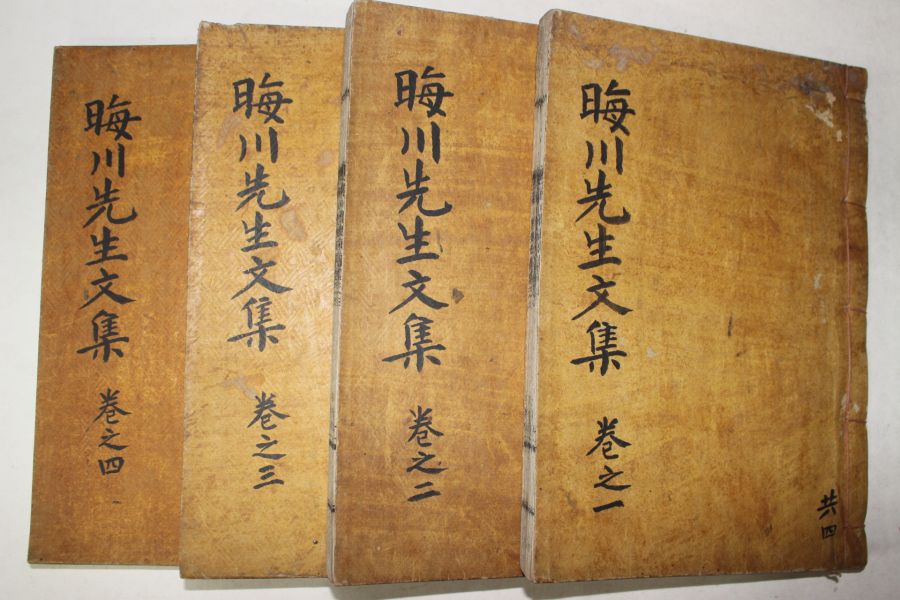 晦川先生文集 卷之一
共四
晦川先生文集 卷之二
晦川先生文集 卷之三
晦川先生文集 卷之四